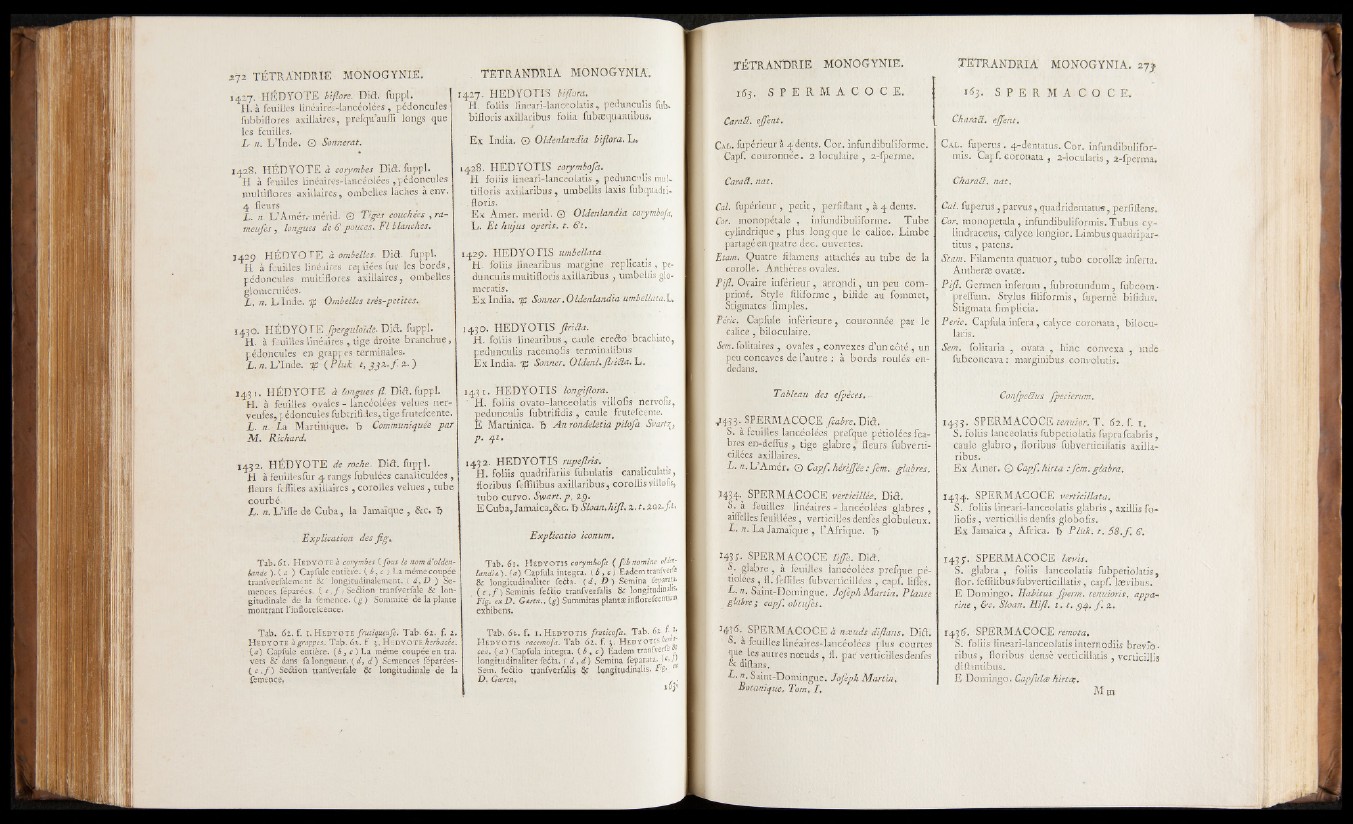 272 TÉTRANDRIE MONOGYNIE.
1427. HÉDYOTE biflore. Dict. suppl.
H. à feuilles linéaires-lancéolées, pédoncules
subbiflores axillaires, presqu'aussi longs que
les feuilles.
L. n. L'Inde. ☉ Sonnerat.
1428. HÉDYOTE à corymbes Dict. suppl.
H à feuilles linéaires-lancéolées, pédoncules
multiflores axillaires, ombelles laches à env.
4 fleurs
L. n. L'Amér. mérid. ☉ Tiges couchées, ra-
meuses, longues de 6 pouces. Fl blanches.
1429 HÉDYOTE à ombelles. Dict. suppl.
H à feuilles linéaires repliées sur les bords,
pédoncules multiflores axillaires, ombelles
glomerulées.
L. n. L'Inde. ♃ Ombelles très-petites.
1430. HÉDYOTE sperguloide. Dict. suppl.
H. à feuilles linéaires, tige droite branchue,
pédoncules en grappes terminales.
L. n. L'Inde. ♃ (Pluk t, 332. f. 2.)
1431. HÉDYOTE à longues fl. Dict. suppl.
H. à feuilles ovales-lancéolées velues ner-
veuses, pédoncules subtrifides, tige frutescente.
L. n. La Martinique. ♄ Communiquée par
M. Richard.
1432. HÉDYOTE de roche. Dict. suppl.
H à feuilles sur 4 rangs subulées canaliculées,
fleurs sessiles axillaires, corolles velues, tube
courbé
L. n. L'isle de Cuba, la Jamaique, &c. ♄
Explication des fig.
Tab. 61. HEDYOTE à corymbes (sous le nom d'olden-
lande). (a) Capsule entière. (b, c) La même coupée
transversalement & longitudinalement. (d, D) Se-
mences séparées. (e, f) Section transversale & lon-
gitudinale de la semence. (g) Sommité de la plante
montrant l'inflorescence.
Tab. 62. f. 1. HEDYOTE frutiqueuse. Tab. 62. f. 2.
HEDYOTE à grappes. Tab. 62. f. 3. HEDYOTE herbacée.
(a) Capsule entière. (b, c) La même coupée en tra-
vers & dans sa longueur. (d, d) Semences séparées.
(e, f) Section transversale & longitudinale de la
semence.
TETRANDRIA MONOGYNIA.
1427. HEDYOTIS biflora.
H foliis lineari-lanceolatis, pedunculis sub-
bifloris axillaribus folia subæquantibus.
Ex India. ☉ Oldenlandia biflora. L.
1428. HEDYOTIS corymbosa.
H foliis lineari-lanceolatis, pedunculis mul-
tifloris axillaribus, umbellis laxis subquadri-
floris.
Ex Amer. merid. ☉ Oldenlandia corymbosa.
L. Et hujus operis. t. 61.
1429. HEDYOTIS umbellata
H. foliis linearibus margine replicatis, pe-
dunculis multifloris axillaribus, umbellis glo-
meratis.
Ex India. ♃ Sonner. Oldenlandia umbellata. L.
1430. HEDYOTIS stricta.
H. foliis linearibus, caule erecto brachiato,
pedunculis racemosis terminalibus
Ex India. ♃ Sonner. Oldenl. stricta. L.
1431. HEDYOTIS longiflora.
H. foliis ovato-lanceolatis villosis nervosis,
pedunculis subtrifidis, caule frutescente.
E Martinica. ♄ An rondeletia pilosa Swartz,
p. 41.
1432. HEDYOTIS rupestris.
H. foliis quadrifariis subulatis canaliculatis,
floribus sessilibus axillaribus, corollis villosis,
tubo curvo. Swart. p. 29.
E Cuba, Jamaica, &c. ♄ Sloan. hist. 2. t. 202. f. 1.
Explicatio iconum.
Tab. 61. HEDYOTIS corymbosa (sub nomine olden-
landiæ). (a) Capsula integra. (b, c) Eadem transverse
& longitudinaliter secta. (d, D) Semina separata.
(e, f) Seminis sectio transversalis & longitudinalis.
Fig. ex D. Gærtn. (g) Summitas plantæ inflorescentiam
exhibens.
Tab. 62. f. 1. HEDYOTIS fruticosa. Tab. 62. f. 2.
HEDYOTIS racemosa. Tab 62. f. 3. HEDYOTIS herba-
cea. (a) Capsula integra. (b, c) Eadem transverse &
longitudinaliter secta. (d, d) Semina separata. (e, f)
Sem. sectio transversalis & longitudinalis. Fig. ex
D. Gærtn.
163.
TÉTRANDRIE MONOGYNIE.
163. SPERMACOCE.
Caract. essent.
CAL. supérieur à 4 dents. Cor. infundibuliforme.
Caps. couronnée. 2 loculaire, 2-sperme.
Caract. nat.
Cal. supérieur, petit, persistant, à 4 dents.
Cor. monopétale, infundibuliforme. Tube
cylindrique, plus long que le calice. Limbe
partagé en quatre déc. ouvertes.
Etam. Quatre filamens attachés au tube de la
corolle. Anthères ovales.
Pist. Ovaire inférieur, arrondi, un peu com-
primé. Style filiforme, bifide au sommet,
Stigmates simples.
Péric. Capsule inférieure, couronnée par le
calice, biloculaire.
Sem. solitaires, ovales, convexes d'un côté, un
peu concaves de l'autre : à bords roulés en-
dedans.
Tableau des espèces.
1433. SPERMACOCE scabre. Dict.
S. à feuilles lancéolées presque pétiolées sca-
bres en-dessus, tige glabre, fleurs subverti-
cillées axillaires.
L. n. L'Amér. ☉ Caps. hérissée : sem. glabres.
1434. SPERMACOCE verticillée. Dict.
S. à feuilles linéaires-lancéolées glabres,
aisselles feuillées, verticilles denses globuleux.
L. n. La Jamaïque, l'Afrique. ♄
1435. SPERMACOCE lisse. Dict.
S. glabre, à feuilles lancéolées presque pé-
tiolées, fl. sessiles subverticillées, caps. lisses.
L. n. Saint-Domingue. Joseph Martin. Plante
glabre ; caps. obtuses.
1436. SPERMACOCE à nœuds distans. Dict.
S. à feuilles linéaires-lancéolées plus courtes
que les autres nœuds, fl. par verticilles denses
& distans.
L. n. Saint-Domingue. Joseph Martin.
Botanique. Tom. I.
TETRANDRIA MONOGYNIA. 273
163. SPERMACOCE.
Charact. essent.
CAL. superus, 4-dentatus. Cor. infundibulifor-
mis. Caps. coronata, 2-locularis, 2-sperma.
Charact. nat.
Cal. superus, parvus, quadridentatus, persistens.
Cor. monopetala, infundibuliformis. Tubus cy-
lindraceus, calyce longior. Limbus quadripar-
titus, patens.
Stam. Filamenta quatuor, tubo corollæ inserta.
Antheræ ovatæ.
Pist. Germen inferum, subrotundum, subcom-
pressum. Stylus filiformis, superne bifidus.
Stigmata simplicia.
Peric. Capsula infera, calyce coronata, bilocu-
laris.
Sem. solitaria, ovata, hinc convexa, inde
subconcava : marginibus convolutis.
Conspectus specierum.
1433. SPERMACOCE tenuior. T. 62. f. 1.
S. foliis lanceolatis subpetiolatis supra scabris,
caule glabro, floribus subverticillatis axilla-
ribus.
Ex Amer. ☉ Caps. hirta : sem. glabra.
1434. SPERMACOCE verticillata.
S. foliis lineari-lanceolatis glabris, axillis fo-
liosis, verticillis densis globosis.
Ex Jamaica, Africa. ♄ Pluk. t. 58. f. 6.
1435. SPERMACOCE lævis.
S. glabra, foliis lanceolatis subpetiolatis,
flor. sessilibus subverticillatis, caps. lævibus.
E Domingo. Habitus sperm. tenuioris. appa-
rine, &c. Sloan. Hist. 1. t. 94. f. 2.
1436. SPERMACOCE remota.
S. foliis lineari-lanceolatis internodiis brevio-
ribus, floribus dense verticillatis, verticillis
distantibus.
E Domingo. Capsulæ hirtæ.
M m